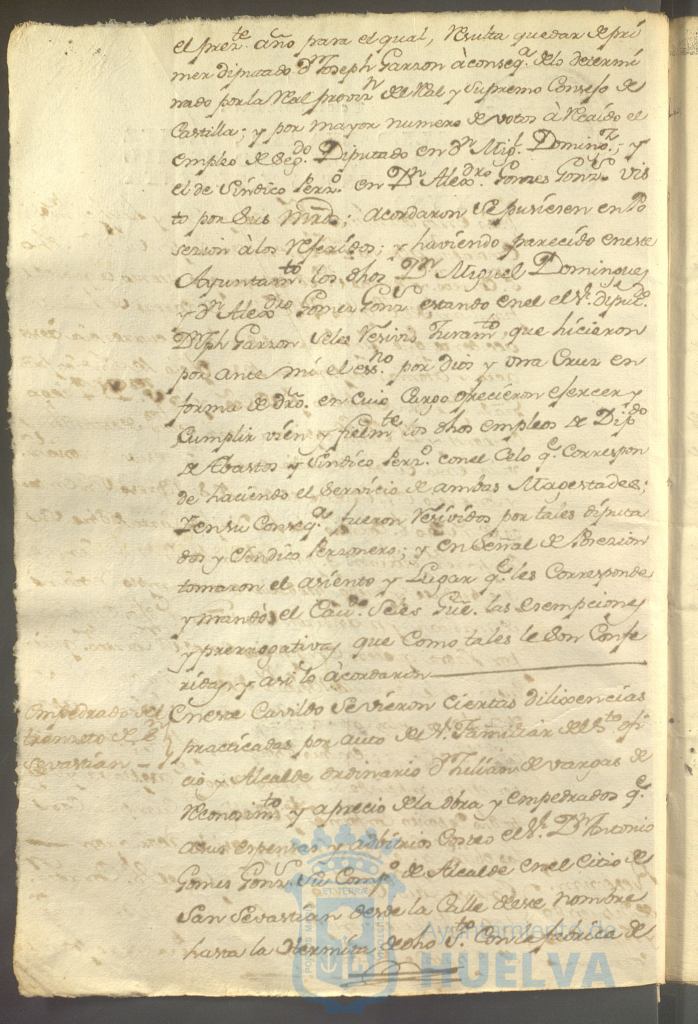 el prez.te año para el qual, Resulta quedar de pri
mer diputado Dn Joseph Garzon à conseq.a de lo determi
nado por la Real proviz.n del Rl y Supremo Consejo de
Castilla; y por mayor numero de votos à Recaido el
empleo de Seg.do Diputado en Dn Mig.l Doming.z; y
el de Sindico Perz.o en Dn Alex.dro Gomez Gonz.s vis
to por Sus Mrds; acordaron Se pusiesen en Po
sesion à los Referidos; y haviendo parecido en este
Ayuntam.to los dhos Dn Miguel Domingues
y Dn Alex.dro Gomez Gonz.s estando en el el S.r diput.do
Dn Jph Garzon Seles Resivio Juram.to que hicieron
por ante mi el ess.no por Dios y una Cruz en
forma de dro. en cuio Cargo ofrecieron ejercer y
Cumplir vien y fielm.te los dhos empleos de Dip.do
de Abastos y Sindico Perz.o con el Celo q.e Correspon
de haciendo el Servicio de ambas Magestades;
Y en su Conseq.a fueron Resividos por tales diputa
dos y Sindico Perzonero; y en Señal de Posezion
tomaron el asiento y Lugar q.e les Corresponde
y mandò el Cav.do Seles Gue. las esempciones
y prerrogativas que Como tales le Son Confe
ridas y asi lo àcordaron
Empedrado del
tránsito de S.n
Sevastian
En este Cavildo Se vieron ciertas dilixencias
practicadas por auto del S.r Familiar del S.to ofi
cio y Alcalde ordinario Dn Julian de Vargas de
Reconosim.to y aprecio de la obra y empedrados q.e
a sus espensas y adbitrios Costeo el S.r Dn Antonio
Gomes Gonz.s Su Comp.o de Alcalde en el Citio de
San Sevastian desde la Calle de este Nombre
hasta la Hermita de dho S.to Con la fabrica de
Ayuntamiento de
HUELVA